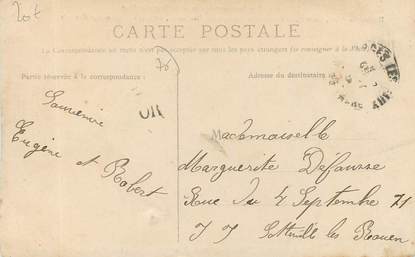 20t
CARTE POSTALE
La Correspondance au recto n'est pas acceptée par tous les pays étrangers (se renseigner à la
Partie réservée à la correspondance :
Adresse du destinataire
Souvenir
Eugène et Robert
OR
Mademoiselle
Marguerite Défausse
Rue du 4 Septembre 71
Sotteville les Rouen